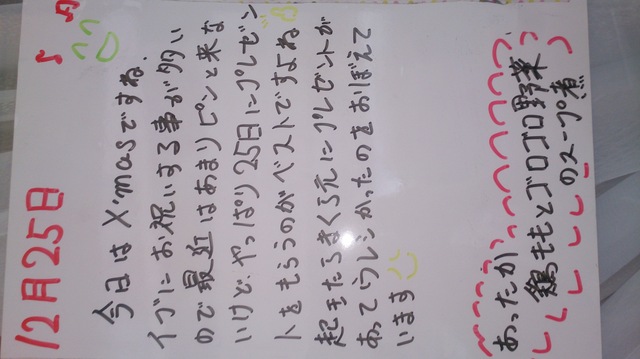 12月25日
今日はX'masですね。
イブにお祝いする事が多い
ので最近はあまりピンと来な
いけど、やっぱり25日にプレゼン
トをもらうのがベストですよね
起きたらまくら元にプレゼントが
あってうレしかったのをおぼえて
います
あったか
鶏ももとゴロゴロ野菜
のスープ煮